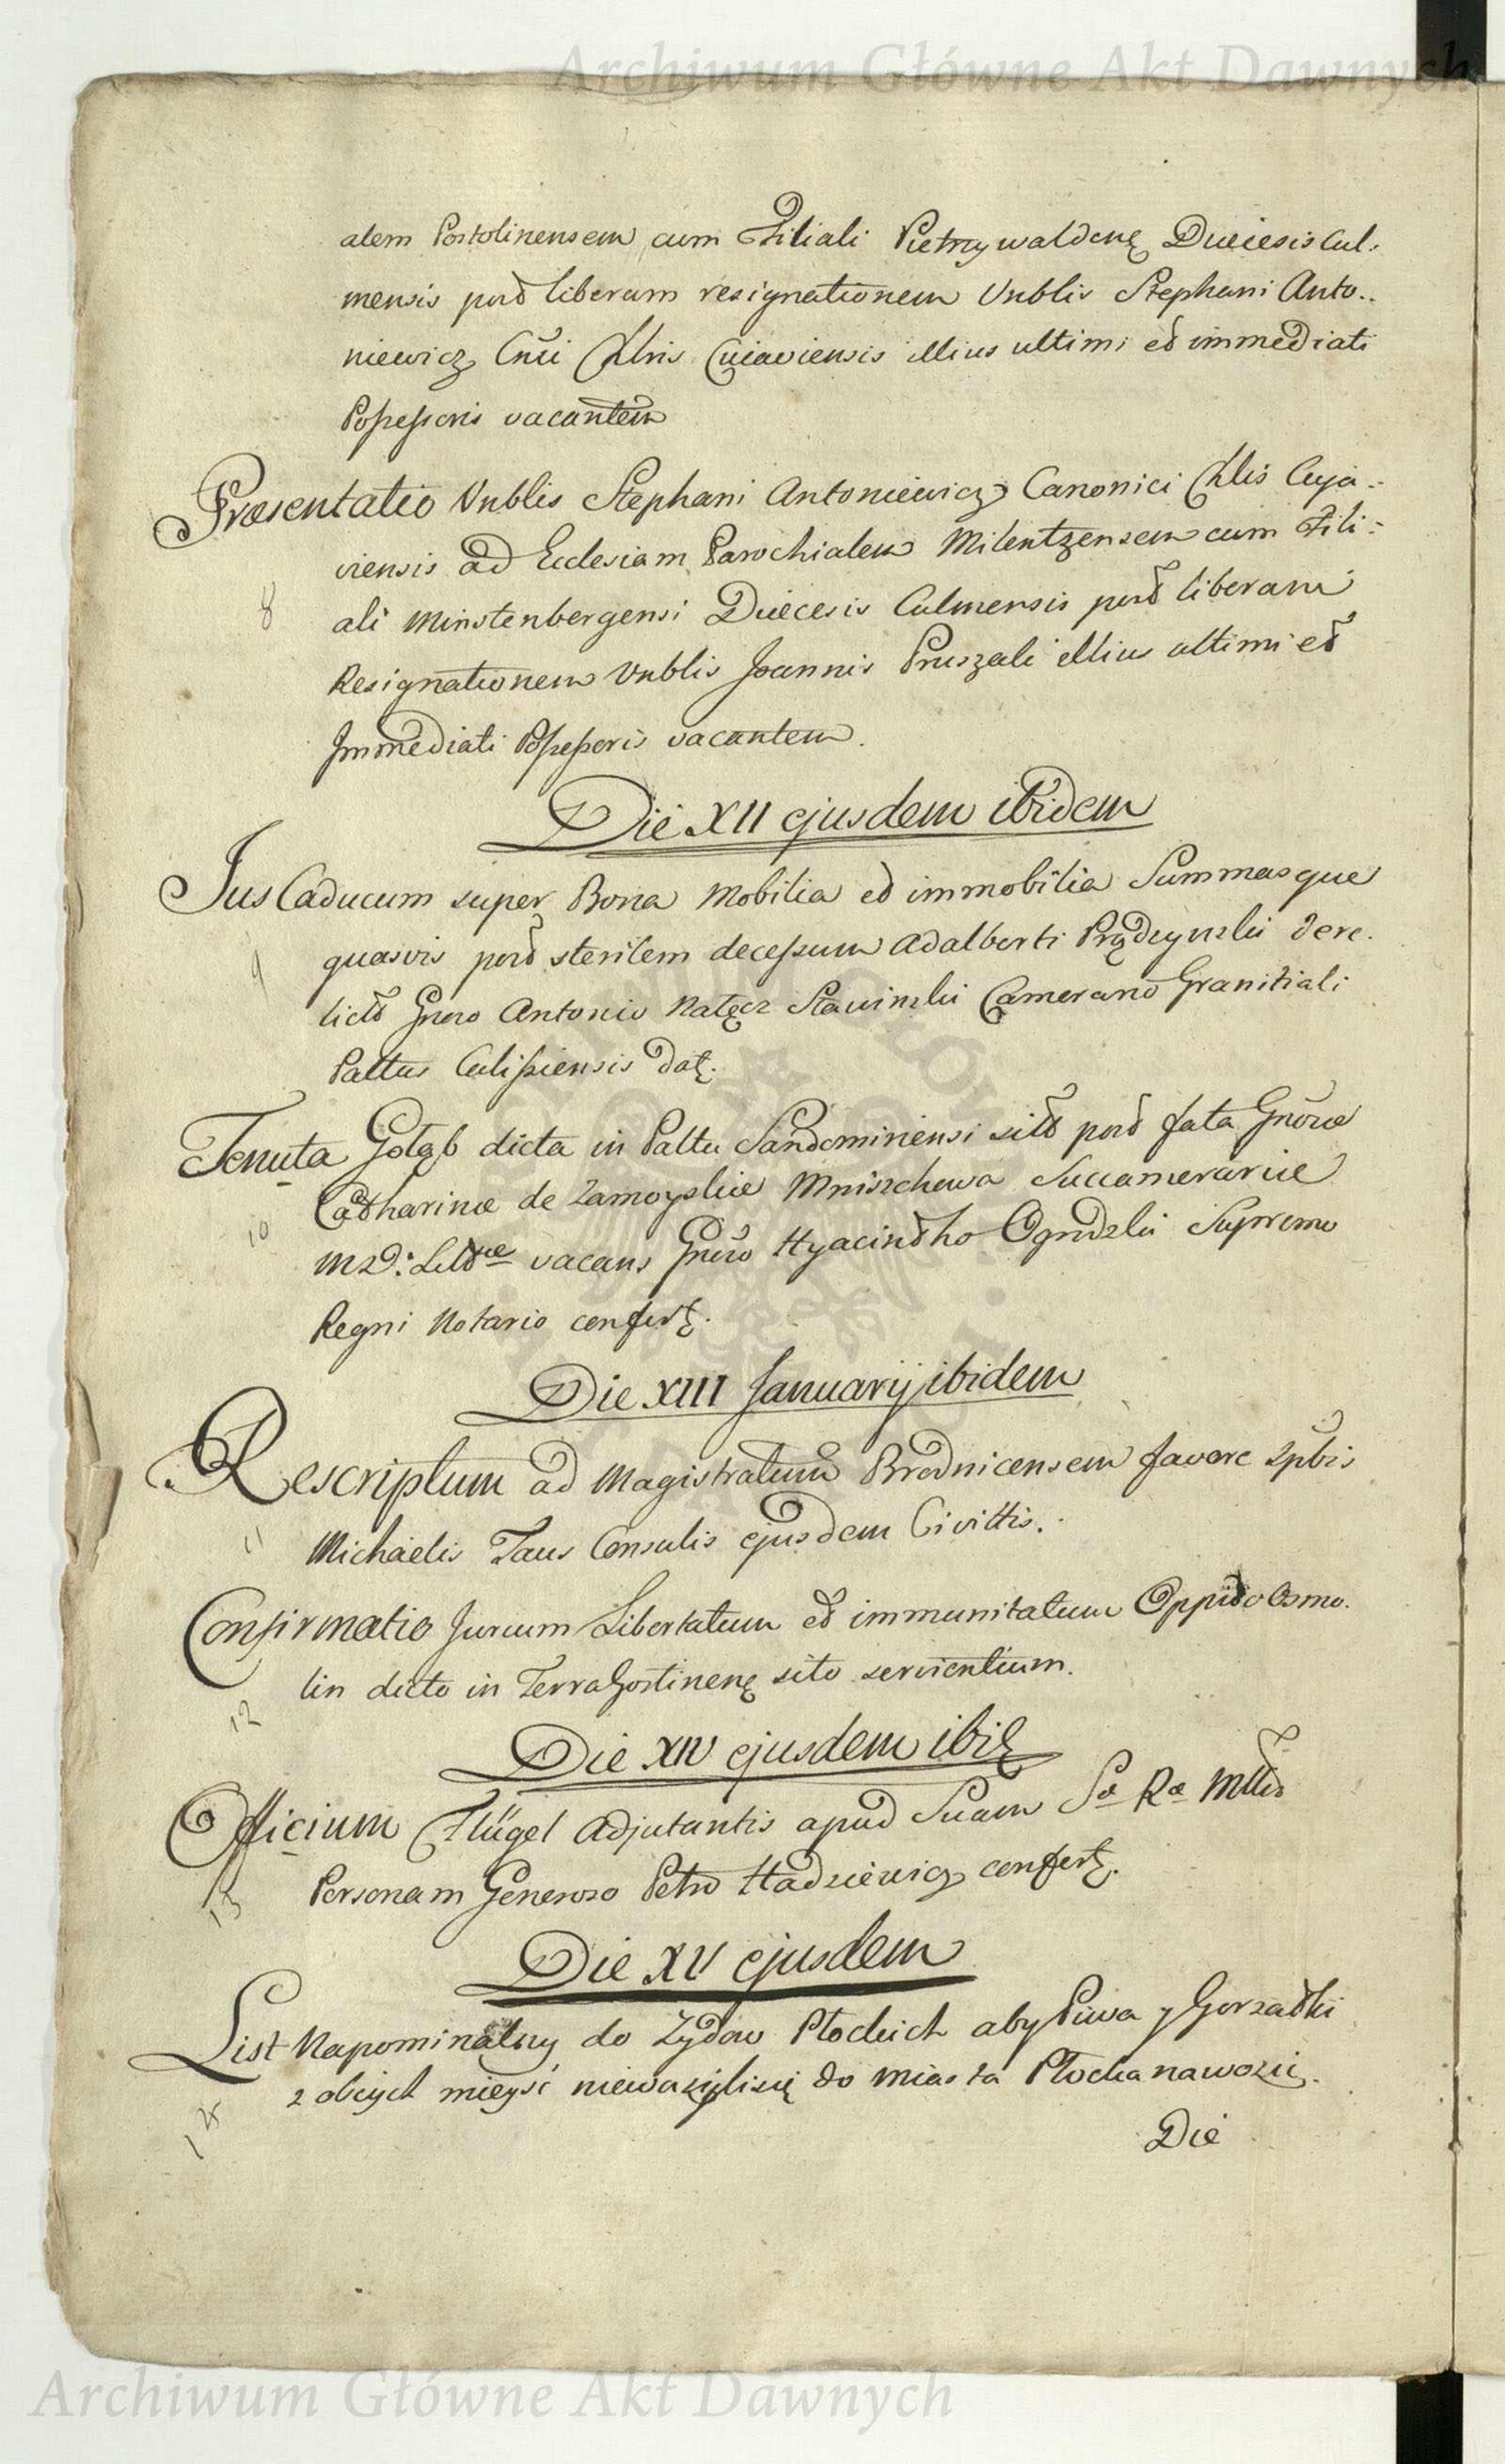 Archiwum Główne Akt Dawnych
alem Postolinensem cum Filiali Pietrzywaldenę Diecesis Cul:
mensis post liberam resignationem Vnblis Stephani Anto:
niewicz Cnci Chlis Cujaviensis illius ultimi et immediati
Possessoris vacantem
Præsentatio Vnblis Stephani Antoniewicz Canonici Chlis Cuja:
viensis ad Ecclesiam Parochialem Milentzensem cum Fili:
8
ali Minstenbergensi Diecesis Culmensis post liberam
Resignationem Vnblis Joannis Pruszak illius ultimi et
Immediati Possessoris vacantem.
Die XII ejusdem ibidem
Jus Caducum super Bona Mobilia et immobilia Summasque
9
quasvis post sterilem decessum Adalberti Prądzynski dere:
licto Gneroso Antonio Nałęcz Sławinski Camerario Granitiali
Pallus Calissiensis datę.
Tenuta Gołąb dicta in Paltu Sandomiriensi sito post fata Gnörae
10
Catharinæ de Zamoyskie Mniszchowa Succamerariæ
M D: Littæ vacans Gneroso Hyacintho Ogrodzki Supremo
Regni Notario confertę.
Die XIII Januarij ibidem
Rescriptum ad Magistratum Brodnicensem favore Spbis
11
Michaelis Taus Consulis ejusdem Civittis.
Confirmatio Jurium Libertatum et immunitatum Oppido Osmo:
12
lin dicto in Terra Gostinenę sito servientium.
Die XIV ejusdem ibię
Officium Flügel Adjutantis apud Suam Sæ Ræ Mttis
13
Personam Generoso Petro Hadziewicz confertę.
Die XV ejusdem
List Napominalny do Zydow Płockich aby Piwa y Gorzałki
14
z obcych mieysc niewazylisię do Miasta Płocka nawozic.
Die
Archiwum Główne Akt Dawnych